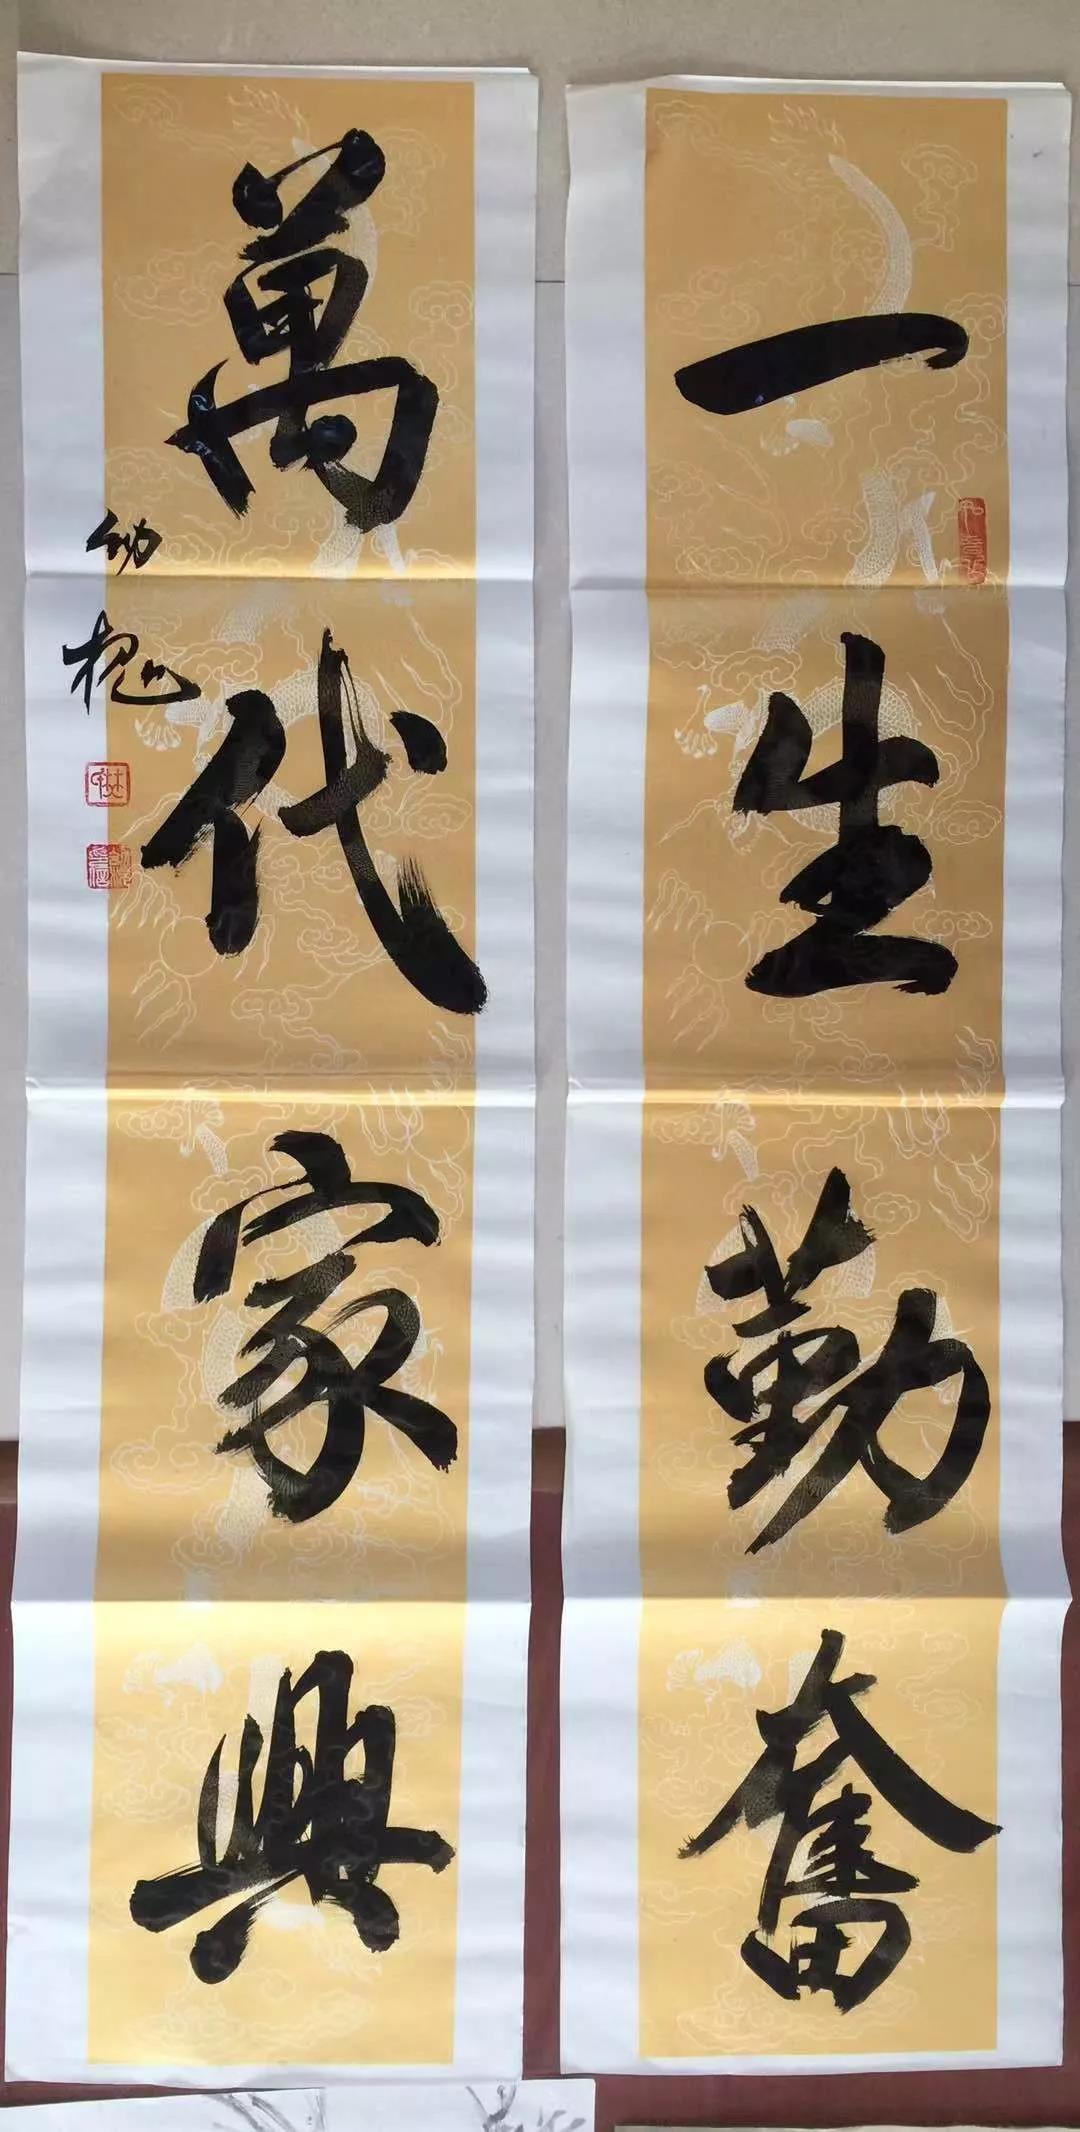 一生勤奮
萬代家興
幼槐